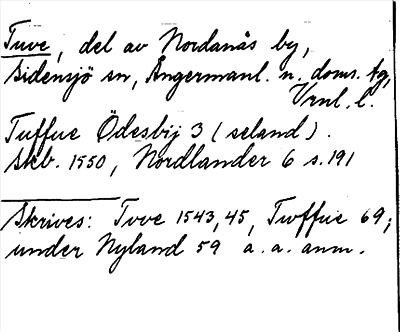 Tuve, del av Nordanås by,
Sidensjö sn, Ångermanl. n. doms. tg,
Vrnl. l.
Tuffue Ödesbij 3 (seland).
Skb. 1550, Nordlander 6 s. 191
Skrives: Tvve 1543, 45, Twffue 69;
under Nyland 59 a. a. anm.